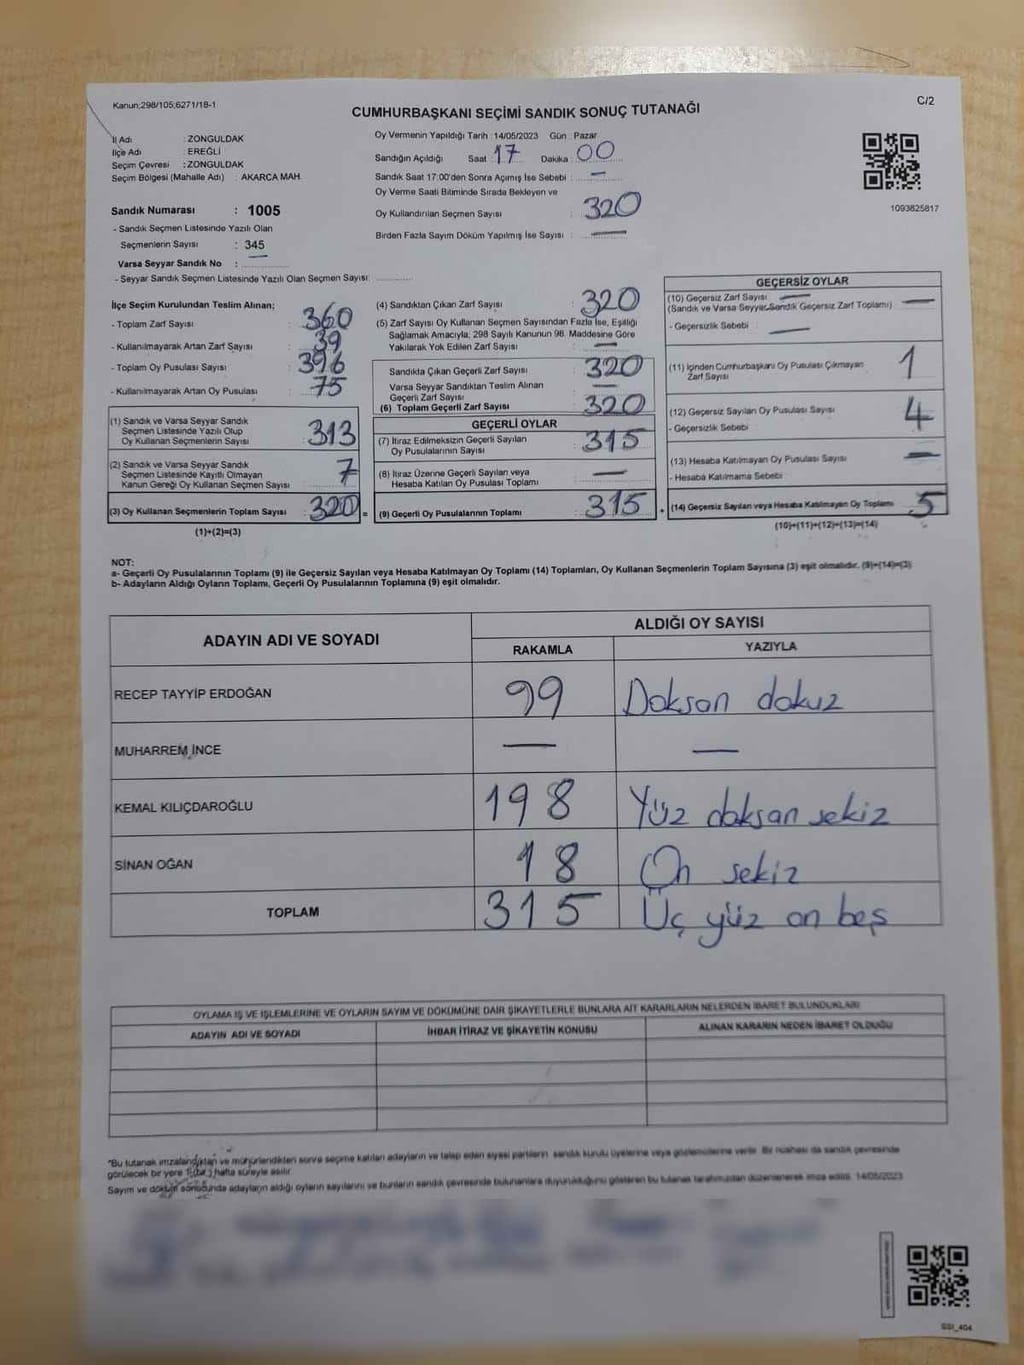 Kanun;298/105;6271/18-1
C/2
CUMHURBAŞKANI SEÇİMİ SANDIK SONUÇ TUTANAĞI
İl Adı : ZONGULDAK
İlçe Adı : EREĞLİ
Seçim Çevresi : ZONGULDAK
Seçim Bölgesi (Mahalle Adı) : AKARCA MAH.
Sandık Numarası : 1005
- Sandık Seçmen Listesinde Yazılı Olan
Seçmenlerin Sayısı : 345
Varsa Seyyar Sandık No : —
- Seyyar Sandık Seçmen Listesinde Yazılı Olan Seçmen Sayısı:
Oy Vermenin Yapıldığı Tarih : 14/05/2023 Gün : Pazar
Sandığın Açıldığı Saat : 17 Dakika : 00
Sandık Saat 17:00'den Sonra Açımış İse Sebebi : —
Oy Verme Saati Bitiminde Sırada Bekleyen ve
Oy Kullandırılan Seçmen Sayısı : 320
Birden Fazla Sayım Döküm Yapılmış İse Sayısı : —
1093825817
İlçe Seçim Kurulundan Teslim Alınan;
- Toplam Zarf Sayısı : 360
- Kullanılmayarak Artan Zarf Sayısı : 39
- Toplam Oy Pusulası Sayısı : 396
- Kullanılmayarak Artan Oy Pusulası : 75
(1) Sandık ve Varsa Seyyar Sandık
Seçmen Listesinde Yazılı Olup
Oy Kullanan Seçmenlerin Sayısı : 313
(2) Sandık ve Varsa Seyyar Sandık
Seçmen Listesinde Kayıtlı Olmayan
Kanun Gereği Oy Kullanan Seçmen Sayısı : 7
(3) Oy Kullanan Seçmenlerin Toplam Sayısı : 320 =
(1)+(2)=(3)
(4) Sandıktan Çıkan Zarf Sayısı : 320
(5) Zarf Sayısı Oy Kullanan Seçmen Sayısından Fazla İse, Eşitliği
Sağlamak Amacıyla; 298 Sayılı Kanunun 98. Maddesine Göre
Yakılarak Yok Edilen Zarf Sayısı : —
Sandıkta Çıkan Geçerli Zarf Sayısı : 320
Varsa Seyyar Sandıktan Teslim Alınan
Geçerli Zarf Sayısı : —
(6) Toplam Geçerli Zarf Sayısı : 320
GEÇERLİ OYLAR
(7) İtiraz Edilmeksizin Geçerli Sayılan
Oy Pusulalarının Sayısı : 315
(8) İtiraz Üzerine Geçerli Sayılan veya
Hesaba Katılan Oy Pusulası Toplamı : —
(9) Geçerli Oy Pusulalarının Toplamı : 315 +
GEÇERSİZ OYLAR
(10) Geçersiz Zarf Sayısı —
(Sandık ve Varsa Seyyar Sandık Geçersiz Zarf Toplamı) : —
- Geçersizlik Sebebi : —
(11) İçinden Cumhurbaşkanı Oy Pusulası Çıkmayan
Zarf Sayısı : 1
(12) Geçersiz Sayılan Oy Pusulası Sayısı : 4
- Geçersizlik Sebebi :
(13) Hesaba Katılmayan Oy Pusulası Sayısı : —
- Hesaba Katılmama Sebebi :
(14) Geçersiz Sayılan veya Hesaba Katılmayan Oy Toplamı : 5
(10)+(11)+(12)+(13)=(14)
NOT:
a- Geçerli Oy Pusulalarının Toplamı (9) ile Geçersiz Sayılan veya Hesaba Katılmayan Oy Toplamı (14) Toplamları, Oy Kullanan Seçmenlerin Toplam Sayısına (3) eşit olmalıdır. (9)+(14)=(3)
b- Adayların Aldığı Oyların Toplamı, Geçerli Oy Pusulalarının Toplamına (9) eşit olmalıdır.
ADAYIN ADI VE SOYADI ALDIĞI OY SAYISI
RAKAMLA YAZIYLA
RECEP TAYYİP ERDOĞAN 99 Doksan dokuz
MUHARREM İNCE — —
KEMAL KILIÇDAROĞLU 198 Yüz doksan sekiz
SİNAN OĞAN 18 On sekiz
TOPLAM 315 Üç yüz on beş
OYLAMA İŞ VE İŞLEMLERİNE VE OYLARIN SAYIM VE DÖKÜMÜNE DAİR ŞİKAYETLERLE BUNLARA AİT KARARLARIN NELERDEN İBARET BULUNDUKLARI
ADAYIN ADI VE SOYADI İHBAR İTİRAZ VE ŞİKAYETİN KONUSU ALINAN KARARIN NEDEN İBARET OLDUĞU
*Bu tutanak imzalandıktan ve mühürlendikten sonra seçime katılan adayların ve talep eden siyasi partilerin sandık kurulu üyelerine veya gözlemcilerine verilir. Bir nüshası da sandık çevresinde
görülecek bir yere 1 (bir) hafta süreyle asılır.
Sayım ve döküm sonucunda adayların aldığı oyların sayılarını ve bunların sandık çevresinde bulunanlara duyurulduğunu gösteren bu tutanak tarafımızdan düzenlenerek imza edildi. 14/05/2023
SSI_404